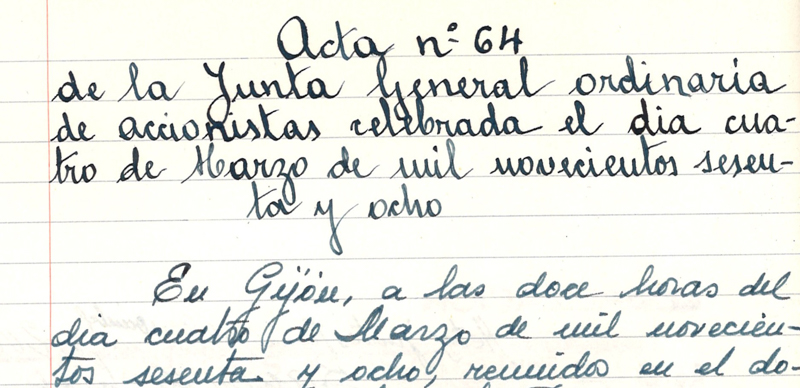 Acta nº 64
de la Junta General ordinaria
de accionistas celebrada el dia cua-
tro de Marzo de mil novecientos sesen-
ta y ocho
En Gijón, a las doce horas del
dia cuatro de Marzo de mil novecien-
tos sesenta y ocho, reunidos en el do-